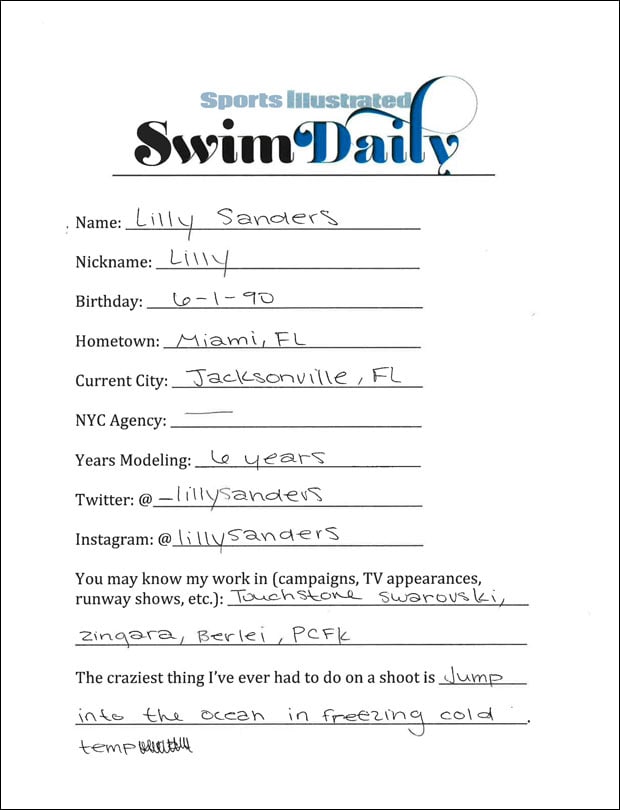 Sports Illustrated
Swim Daily
Name: Lilly Sanders
Nickname: Lilly
Birthday: 6-1-90
Hometown: Miami, FL
Current City: Jacksonville, FL
NYC Agency: —
Years Modeling: 6 years
Twitter: @ _lillysanders
Instagram: @ lillysanders
You may know my work in (campaigns, TV appearances,
runway shows, etc.): Touchstone swarovski,
zingara, Berlei, PCFK
The craziest thing I've ever had to do on a shoot is Jump
into the ocean in freezing cold .
temp